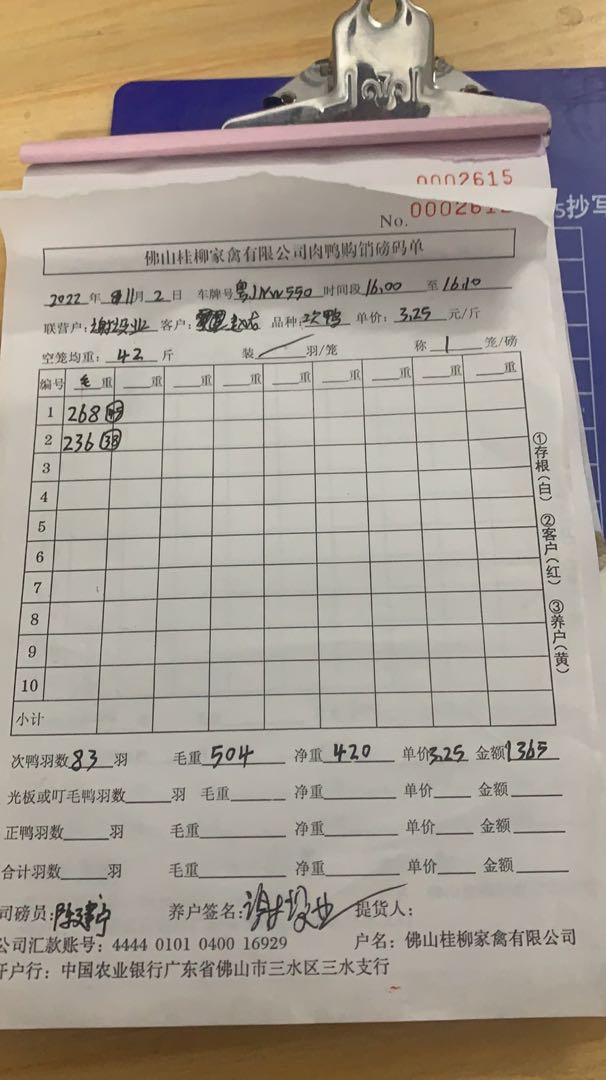 0002615
No. 000261
佛山桂柳家禽有限公司肉鸭购销磅码单
5抄写
2022 年 11 月 2 日 车牌号 粤JNW550 时间段 16.00 至 16.10
联营户: 谢设业 客户: 品种: 次鸭 单价: 3.25 元/斤
空笼均重: 42 斤 装 羽/笼 称 1 笼/磅
编号 毛重 重 重 重 重 重 重 重
1 268 45
2 236 38
3
4
5
6
7
8
9
10
小计
①存根(白) ②客户(红) ③养户(黄)
次鸭羽数 83 羽 毛重 504 净重 420 单价 3.25 金额 1365
光板或叮毛鸭羽数 羽 毛重 净重 单价 金额
正鸭羽数 羽 毛重 净重 单价 金额
合计羽数 羽 毛重 净重 单价 金额
司磅员: 养户签名: 谢设业 提货人:
公司汇款账号: 4444 0101 0400 16929 户名: 佛山桂柳家禽有限公司
开户行: 中国农业银行广东省佛山市三水区三水支行